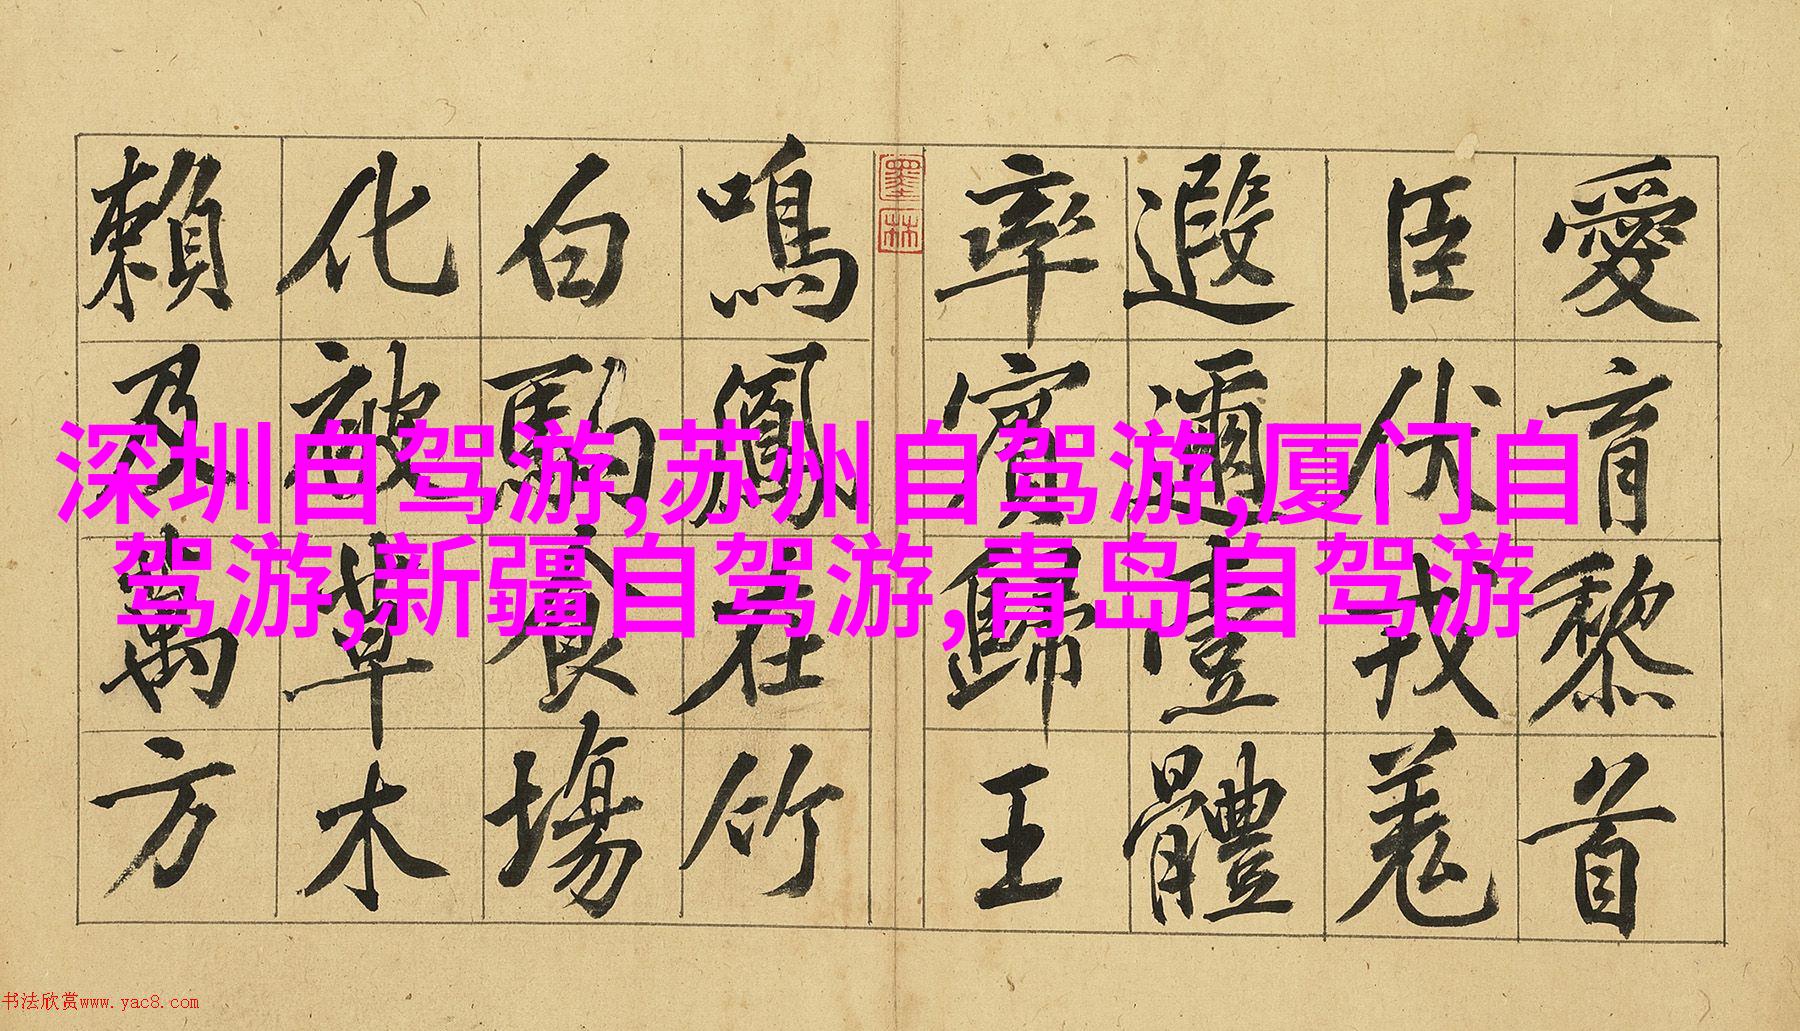 愛育黎首
臣伏戎羌
遐邇壹體
率賓歸王
鳴鳳在竹
白駒食場
化被草木
賴及萬方
墨林
深圳自驾游,苏州自驾游,厦门自
驾游,新疆自驾游,青岛自驾游
书法欣赏www.yac8.com